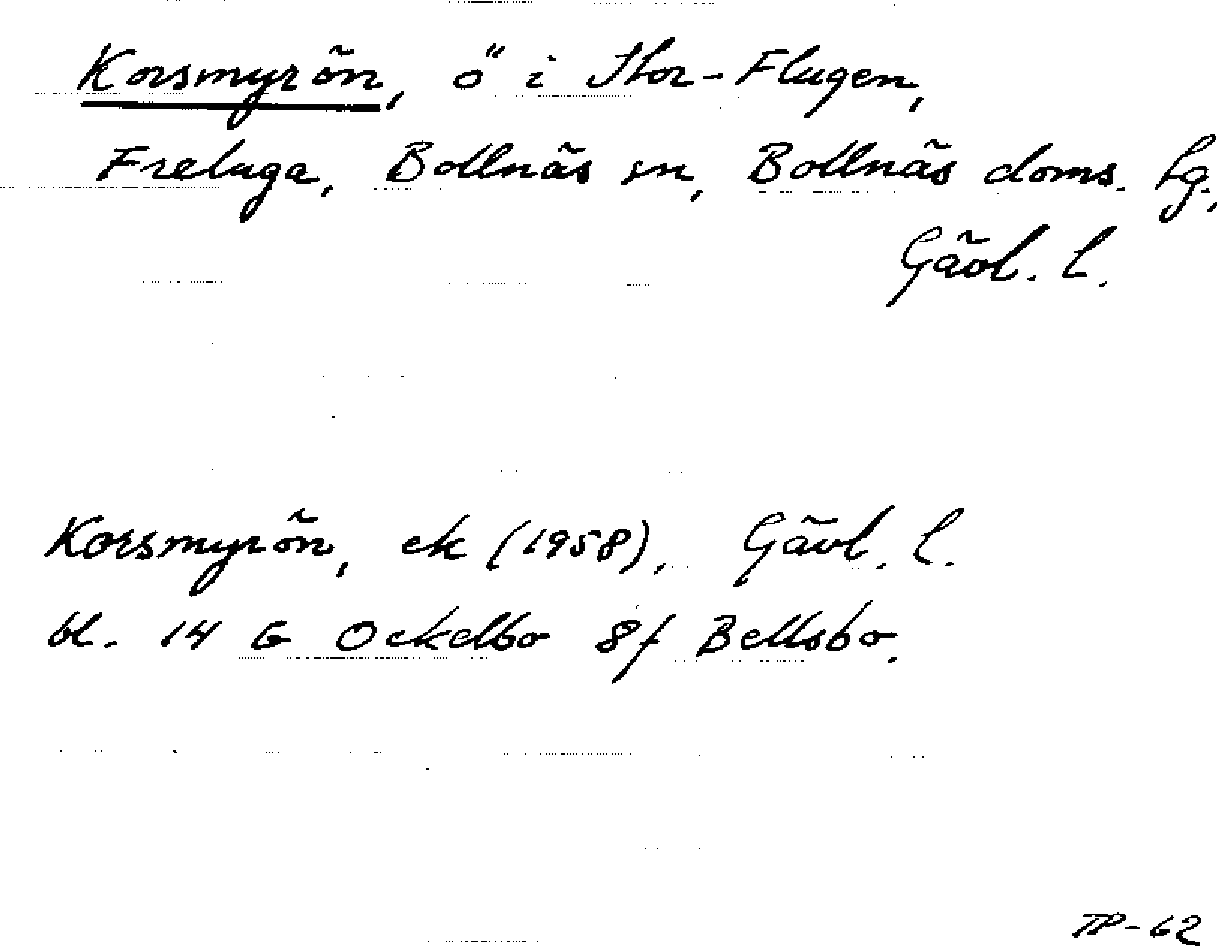 Korsmyrön, ö i Stor-Flugen,
Freluga, Bollnäs sn, Bollnäs doms. hg.,
Gävl. l.
Korsmyrön, ek (1958), Gävl. l.
bl. 14 G Ockelbo 8f Bellsbo.
TP-62